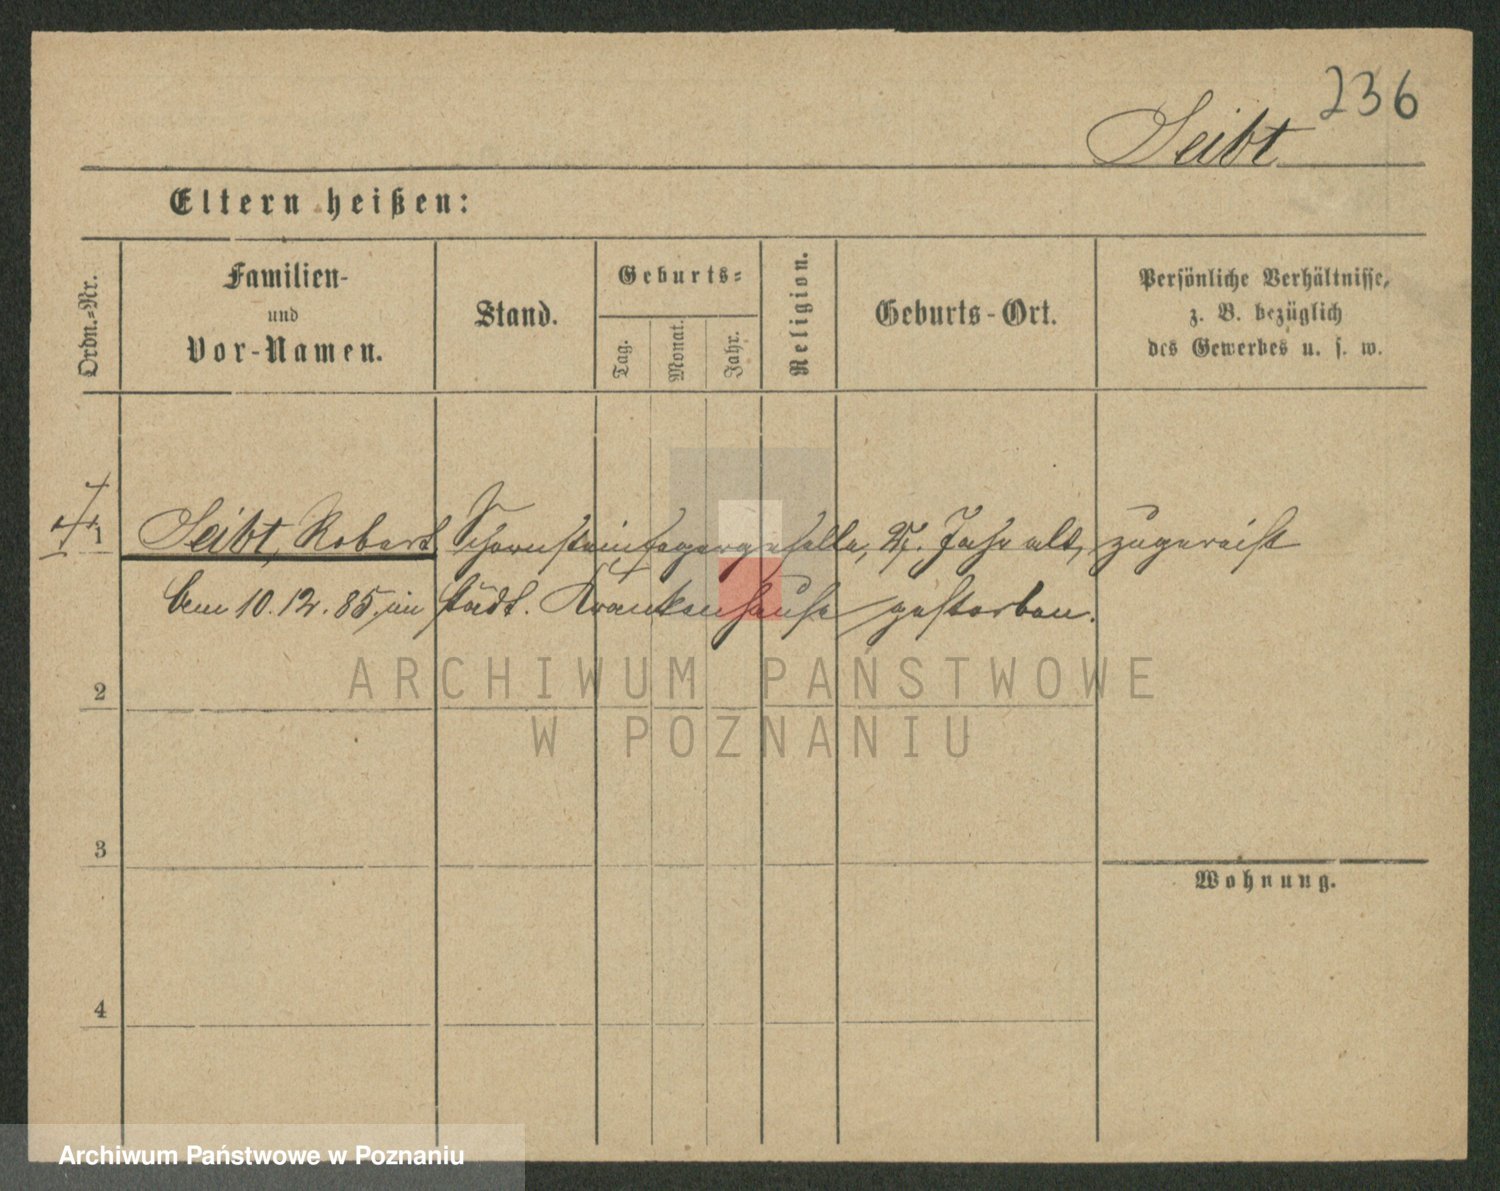 236
Seibt
Eltern heißen:
Ordn.-Nr.
Familien-
und
Vor-Namen.
Stand.
Geburts-
Tag.
Monat.
Jahr.
Religion.
Geburts-Ort.
Persönliche Verhältnisse,
z. B. bezüglich
des Gewerbes u. s. w.
1 Seibt, Robert, Schornsteinfegergeselle, Jahr alt, zugereist
10. 12. 85. im städt. Krankenhause gestorben.
2
3
4
Wohnung.
ARCHIWUM PAŃSTWOWE
W POZNANIU
Archiwum Państwowe w Poznaniu